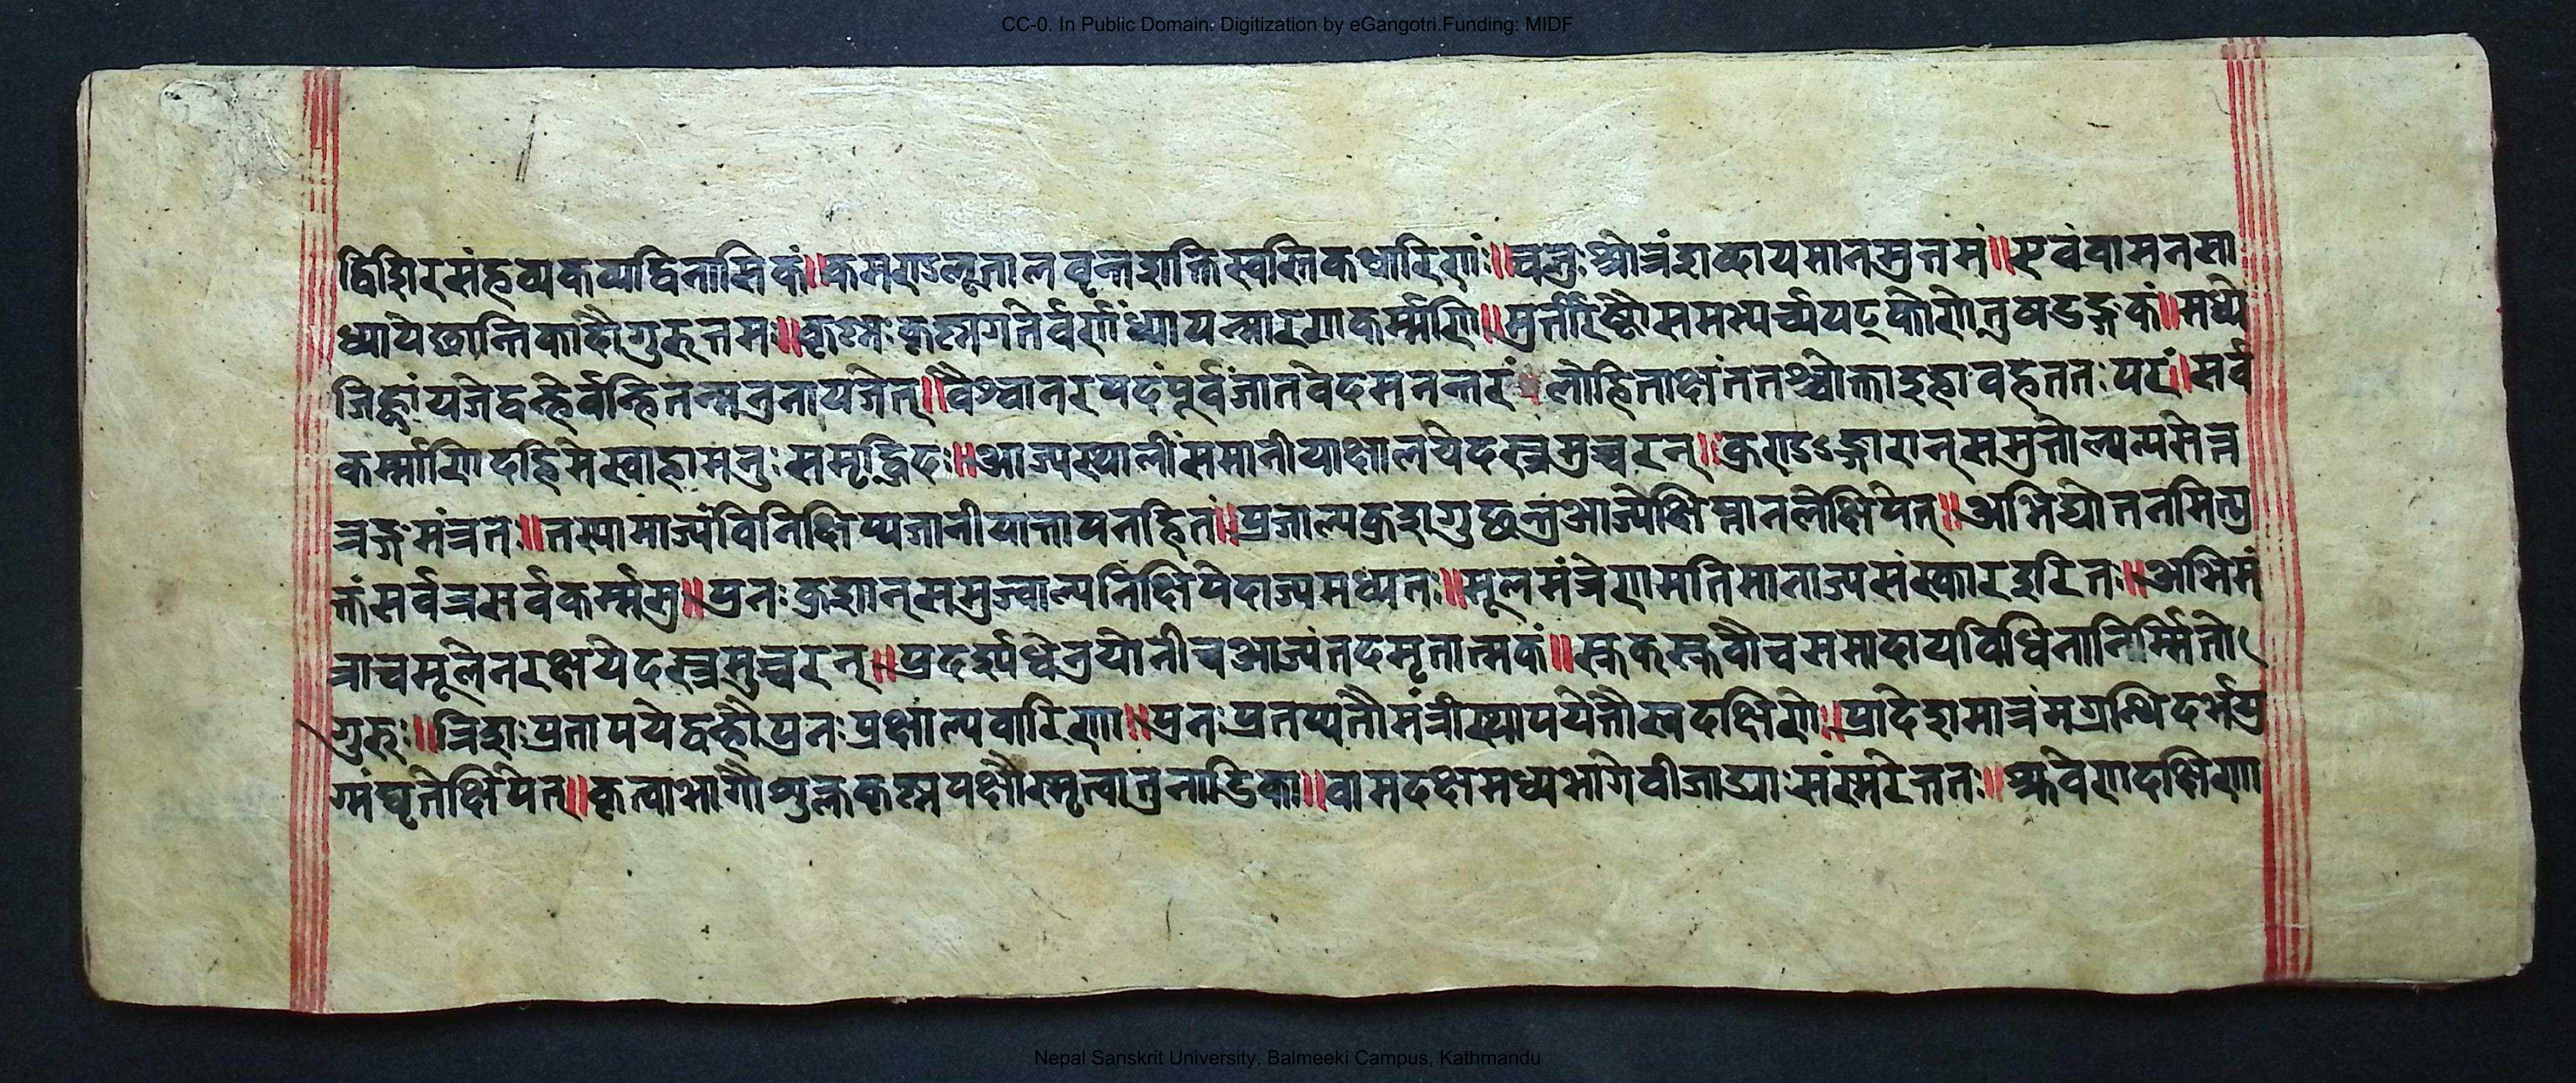 CC-0. In Public Domain. Digitization by eGangotri.Funding: MIDF
द्विशिरसंहव्यकव्यद्विनासिकं॥कमण्डलूतालवृन्तशक्तिस्वस्तिकधारिणं॥चतुःश्रोत्रंशब्दायमानमुत्तमं॥एवंवामनसा
ध्यायेछान्तिकादौगुरुत्तमः॥कृष्मःकृष्मगतेर्वर्णंध्यायन्मारणकर्म्मणि॥मुर्त्तीरष्टौसमभ्यर्च्यषट्कोणेतुषडङ्गकं॥मध्ये
जिह्वांयजेद्वह्नेर्वन्हितन्मत्रनायजेत्॥वैश्वानरपदंपूर्वंजातवेदमनन्तरं लोहिताक्षंततश्चोक्ताइहावहततःपरं॥सर्व
कर्म्माणिदहिमेस्वाहामनुःसमृद्धिदः॥आज्यस्थालींसमानीयाक्षालयेदस्त्रमुच्चरन्॥कुण्डाङ्गारान्समुत्तोल्यन्यसेत्त
त्रङ्गमंत्रतः॥तस्यामाज्यंविनिक्षिप्यजानीयात्तापनहितं॥प्रजाल्यकुशगुछन्तंआज्येक्षिप्तानलेक्षिपेत्॥अभिद्योतनमित्यु
क्तंसर्वत्रसर्वकर्म्मसु॥पुनःकुशान्समुज्वाल्यनिक्षिपेदाज्यमध्यतः॥मूलमंत्रेणमतिमानाज्यसंस्कारइरितः॥अभिमं
त्राचमूलेनरक्षयेदस्त्रमुच्चरन्॥प्रदर्श्यधेनुयोनीचआज्यंतदमृतात्मकं॥स्रुक्स्रुवौचसमादायविधिनानिर्म्मितो
गुरुः॥त्रिशःप्रतापयेद्वह्नौपुनःप्रक्षाल्यवारिणा॥पुनःप्रतप्यतौमंत्रीस्थापयेत्तौस्वदक्षिणे॥प्रादेशमात्रंमग्रन्थिदर्भयु
ग्मंघृतेक्षिपेत्॥कृत्वाभागौशुक्लकृष्मपक्षौस्मृत्वातुनाडिका॥वामदक्षमध्यभागेवीजाद्याःसंस्मरेत्ततः॥स्रुवेणदक्षिणा
Nepal Sanskrit University, Balmeeki Campus, Kathmandu